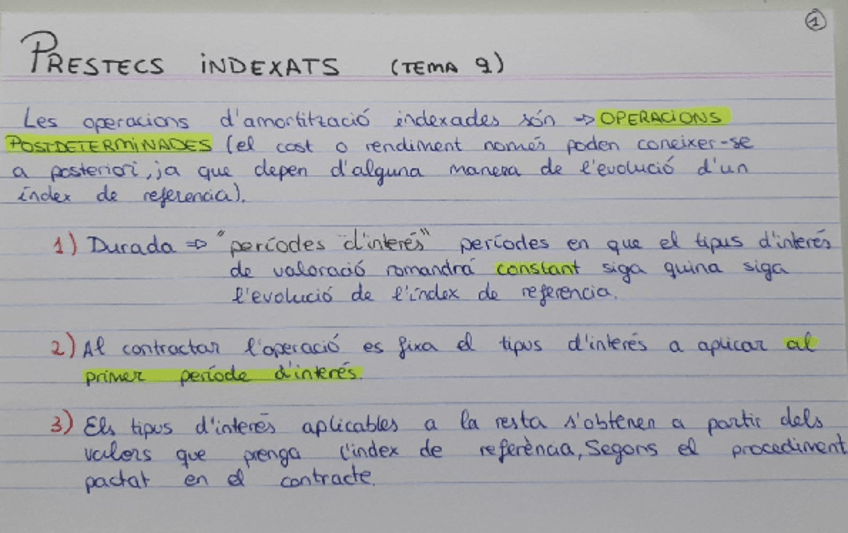 1
PRESTECS INDEXATS (TEMA 9)
Les operacions d'amortització indexades són => OPERACIONS
POSTDETERMINADES (el cost o rendiment només poden coneixer-se
a posteriori, ja que depen d'alguna manera de l'evolució d'un
índex de referencia).
1) Durada => "períodes d'interés" períodes en que el tipus d'interés
de valoració romandrá constant siga quina siga
l'evolució de l'índex de referencia.
2) Al contractar l'operació es fixa el tipus d'interés a aplicar al
primer període d'interés.
3) Els tipus d'interés aplicables a la resta s'obtenen a partir dels
valors que prenga l'index de referència, Segons el procediment
pactat en el contracte.